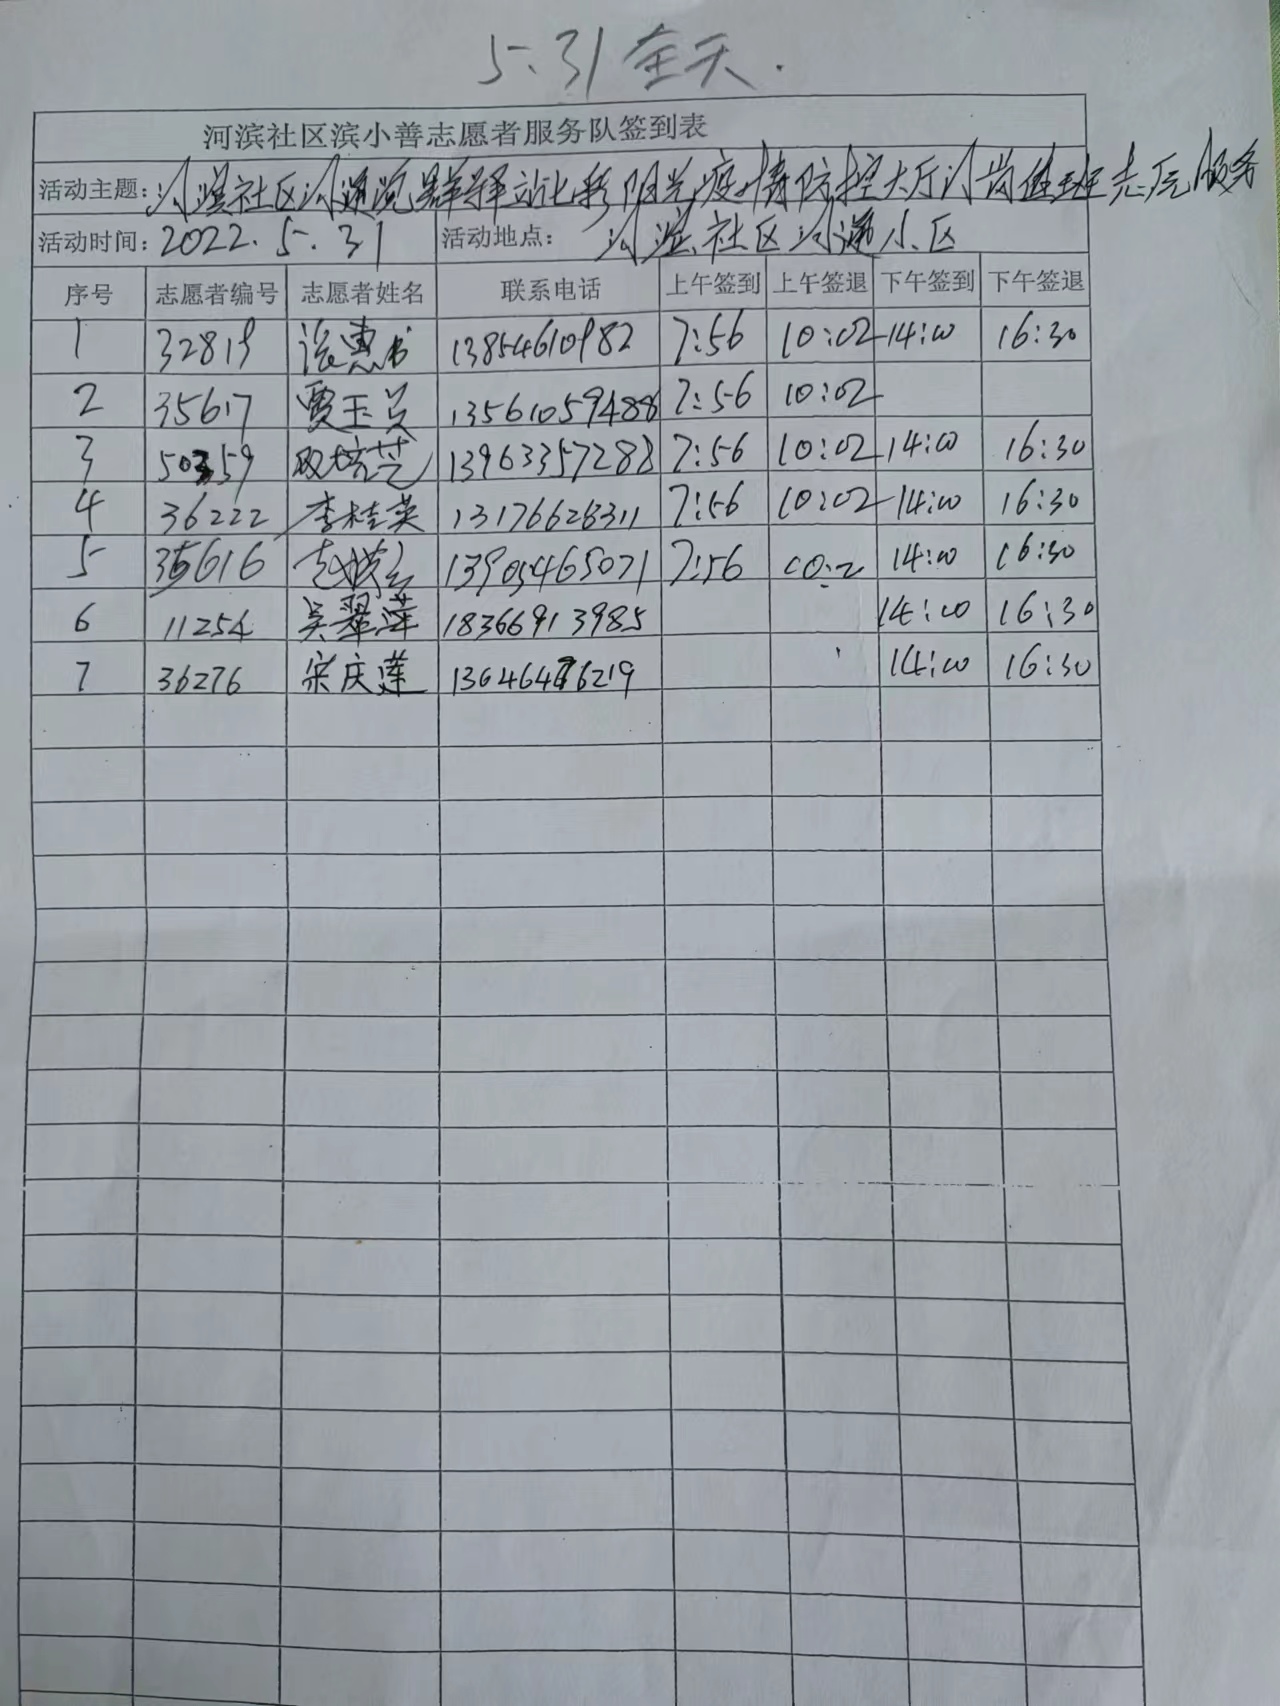 5.31全天.
河滨社区滨小善志愿者服务队签到表
活动主题: 河滨社区河通党群驿站七彩阳光疫情防控大厅门岗值班志愿服务
活动时间: 2022.5.31 活动地点: 河滨社区河通小区
序号 志愿者编号 志愿者姓名 联系电话 上午签到 上午签退 下午签到 下午签退
1 32819 惠 13854610982 7:56 10:02 14:00 16:30
2 35617 贾玉兰 13561059488 7:56 10:02
3 50359 13963357288 7:56 10:02 14:00 16:30
4 36222 李桂英 13176628311 7:56 10:02 14:00 16:30
5 35616 13905465071 7:56 10:2 14:00 16:30
6 11254 吴翠莲 18366913985 14:00 16:30
7 36276 宋庆莲 13646476219 14:00 16:30